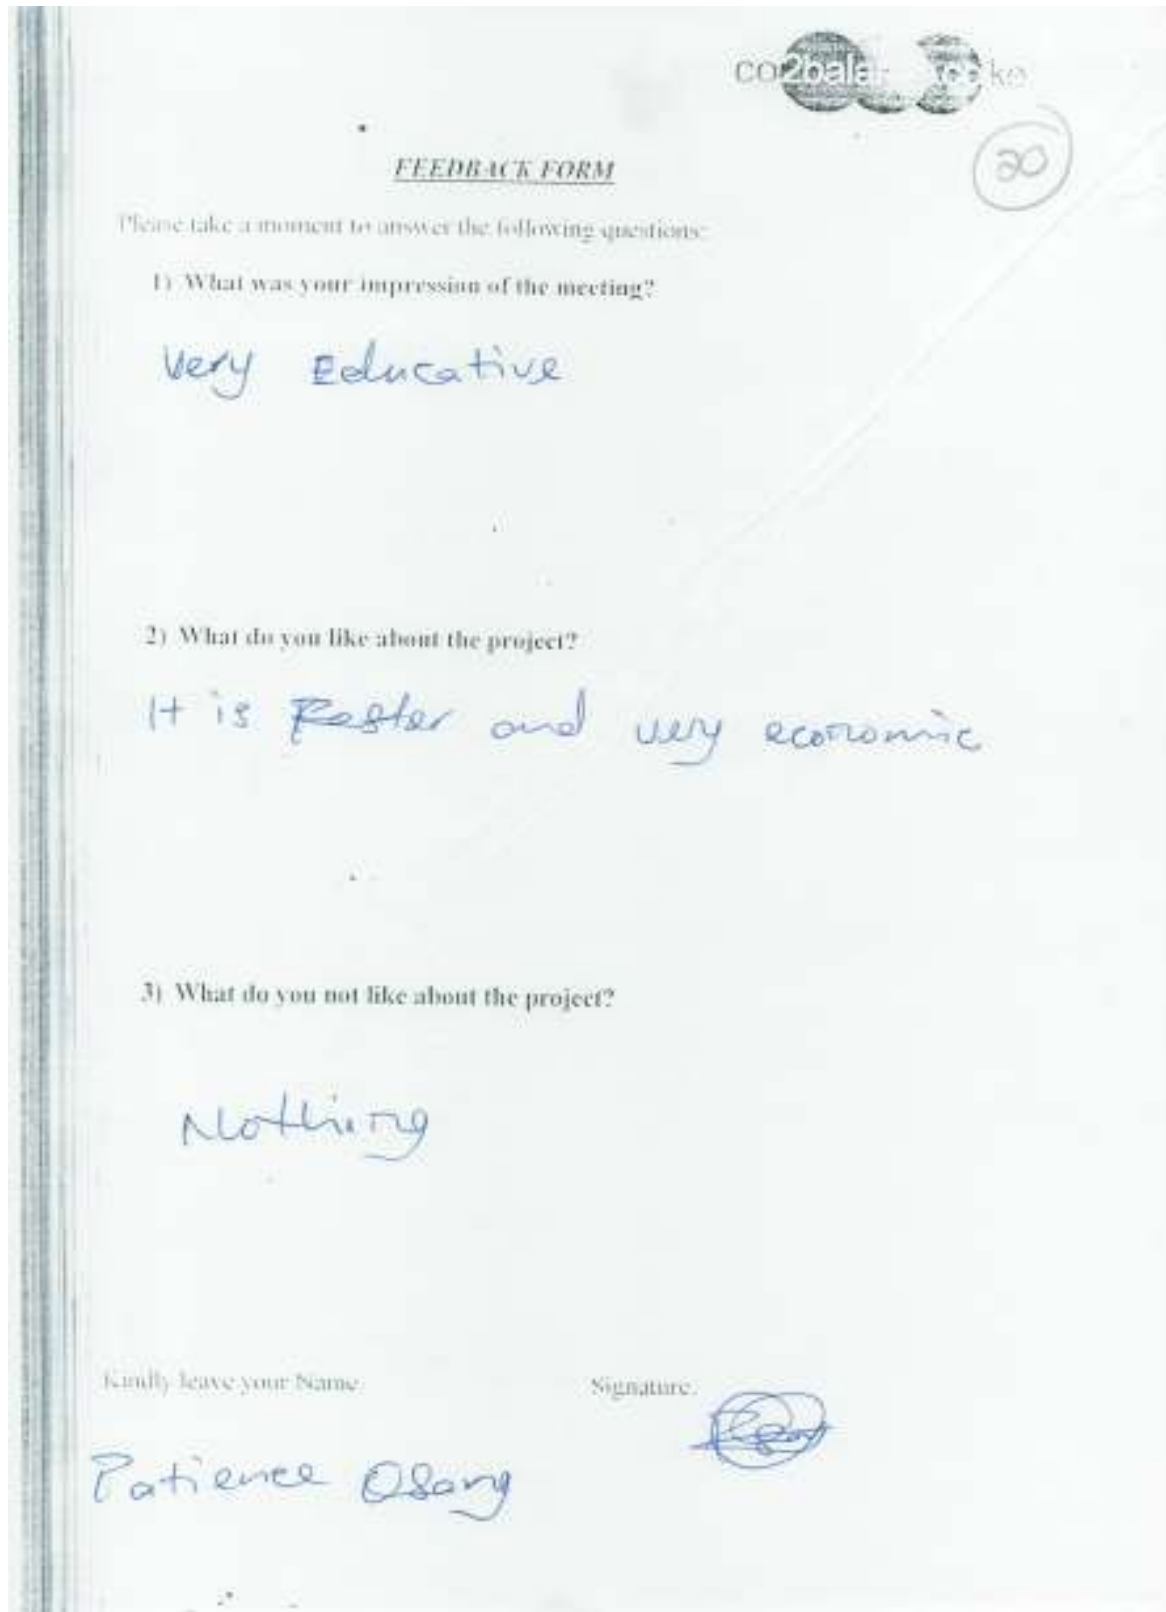 20
FEEDBACK FORM
Please take a moment to answer the following questions:
1) What was your impression of the meeting?
Very Educative
2) What do you like about the project?
It is Faster and very economic
3) What do you not like about the project?
Nothing
Kindly leave your Name. Signature.
Patience Osang